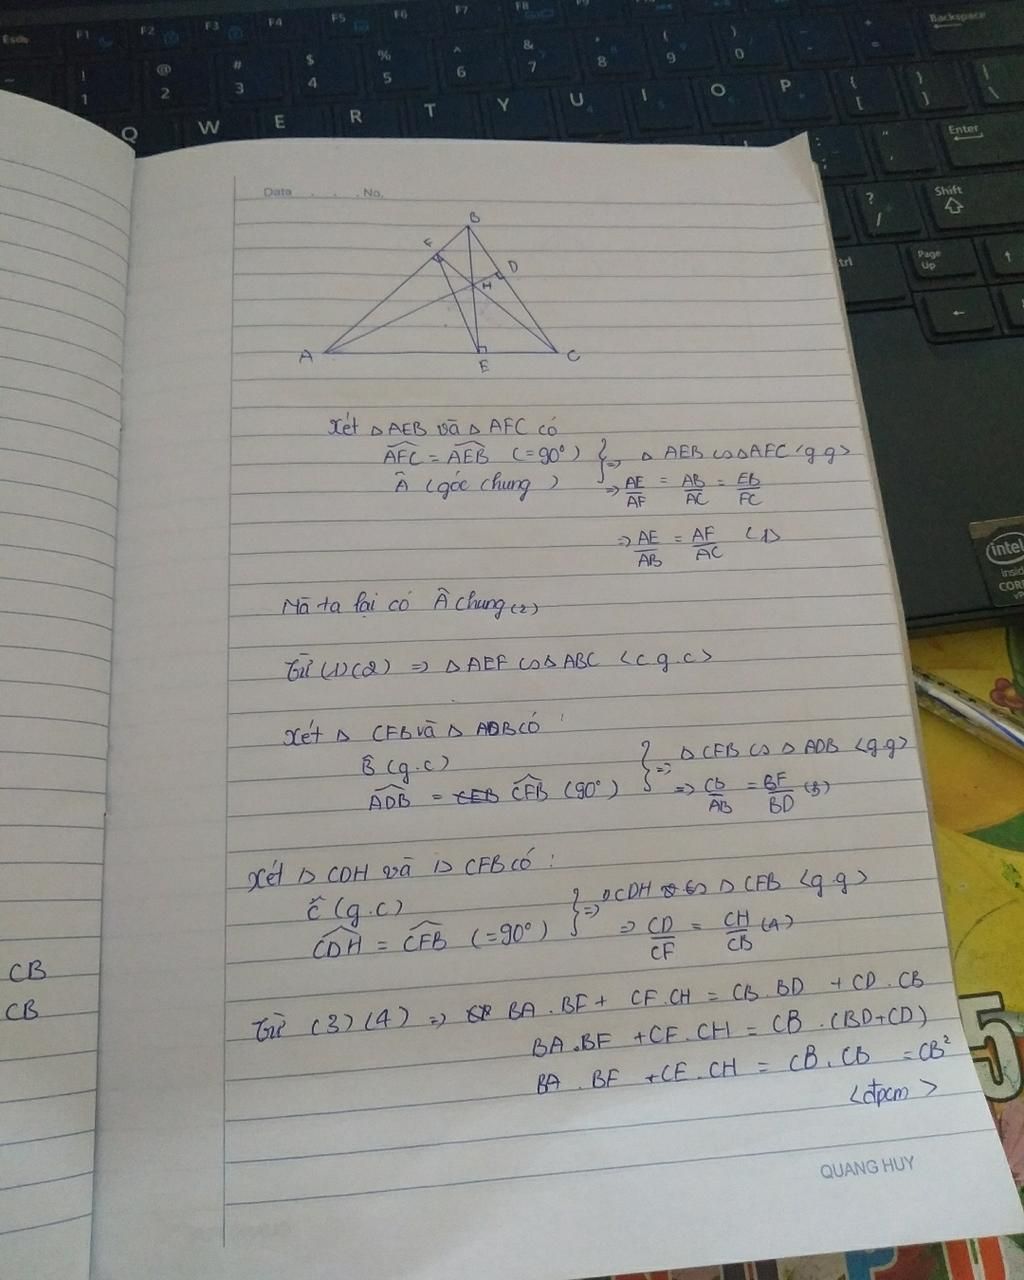 Esc F1 F2 F3 F4 F5 F6 F7 F8 F9 Backspace
~ ! 1 @ 2 # 3 $ 4 % 5 ^ 6 & 7 * 8 ( 9 ) 0 - + = |
Q W E R T Y U I O P { [ } ] \
: ; " ' Enter
? / Shift
Ctrl Page Up ↑
←
intel
inside
CORE
Date . . . . No.
B
F
D
H
A
E
C
Xét △ AEB và △ AFC có
AFC = AEB (=90°) } => △ AEB ∽ △ AFC <g g>
Â (góc chung ) => AE/AF = AB/AC = EB/FC
=> AE/AB = AF/AC (1)
Mà ta lại có Â chung (2)
Từ (1)(2) => △ AEF ∽ △ ABC <c g.c>
Xét △ CFB và △ ADB có :
B̂ (g.c) } => △ CFB ∽ △ ADB <g.g>
ADB = CFB (90°) => CB/AB = BF/BD (3)
Xét △ CDH và △ CFB có :
Ĉ (g.c) } => △ CDH ∽ △ CFB <g g>
CDH = CFB (=90°) => CD/CF = CH/CB (4)
Từ (3)(4) => BA.BF + CF.CH = CB.BD + CD.CB
BA.BF + CF.CH = CB.(BD+CD)
BA.BF + CF.CH = CB.CB = CB²
<đpcm>
CB
CB
5
QUANG HUY